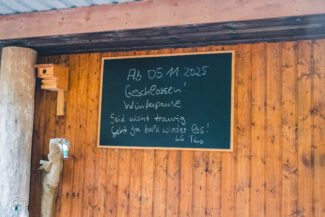 Ab 05.11.2025
Geschlossen!
Winterpause
Seid nicht traurig
Geht ja bald wieder los!
LG Tino